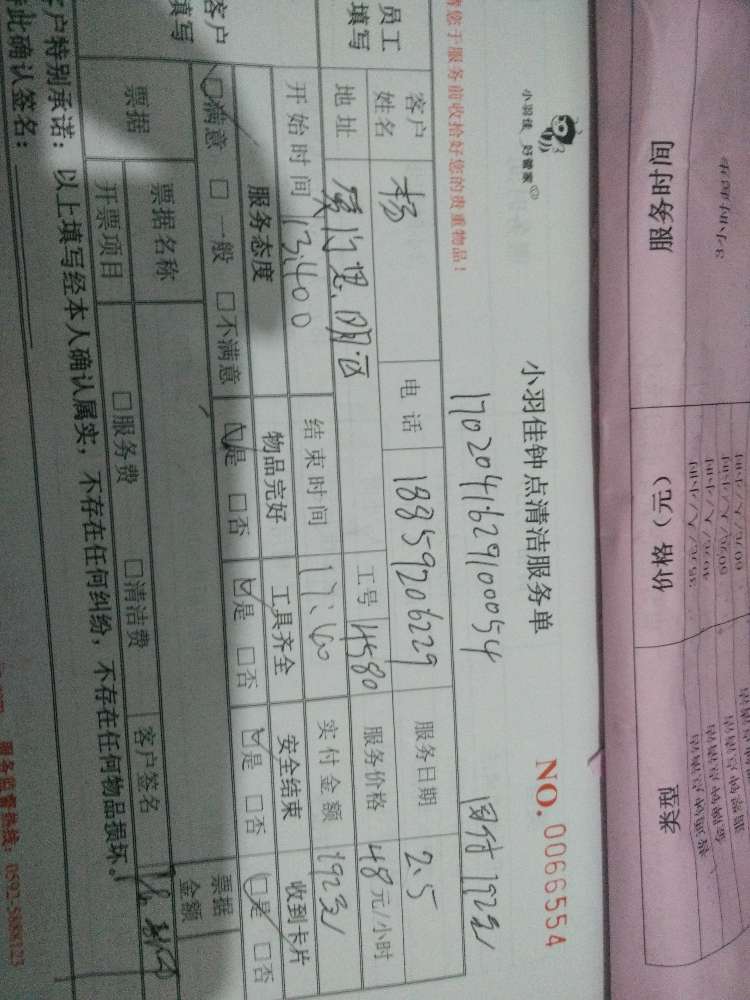 小羽佳 好管家
小羽佳钟点清洁服务单
NO. 0066554
1702041629100054
周付 192元
请您于服务前收拾好您的贵重物品！
员工填写
客户姓名 杨 电话 18859206229 服务日期 2.5
地址 厦门思明区 工号 4580 服务价格 48元/小时
开始时间 13:400 结束时间 17:40 实付金额 192元
客户填写
服务态度 物品完好 工具齐全 安全结束 收到卡片
☑满意 □一般 □不满意 ☑是 □否 ☑是 □否 ☑是 □否 ☑是 □否
票据 票据名称 票据金额
开票项目 □服务费 □清洁费 客户签名
客户特别承诺：以上填写经本人确认属实，不存在任何纠纷，不存在任何物品损坏。
特此确认签名：
服务监督热线：0592-5888123
服务时间 价格（元） 类型